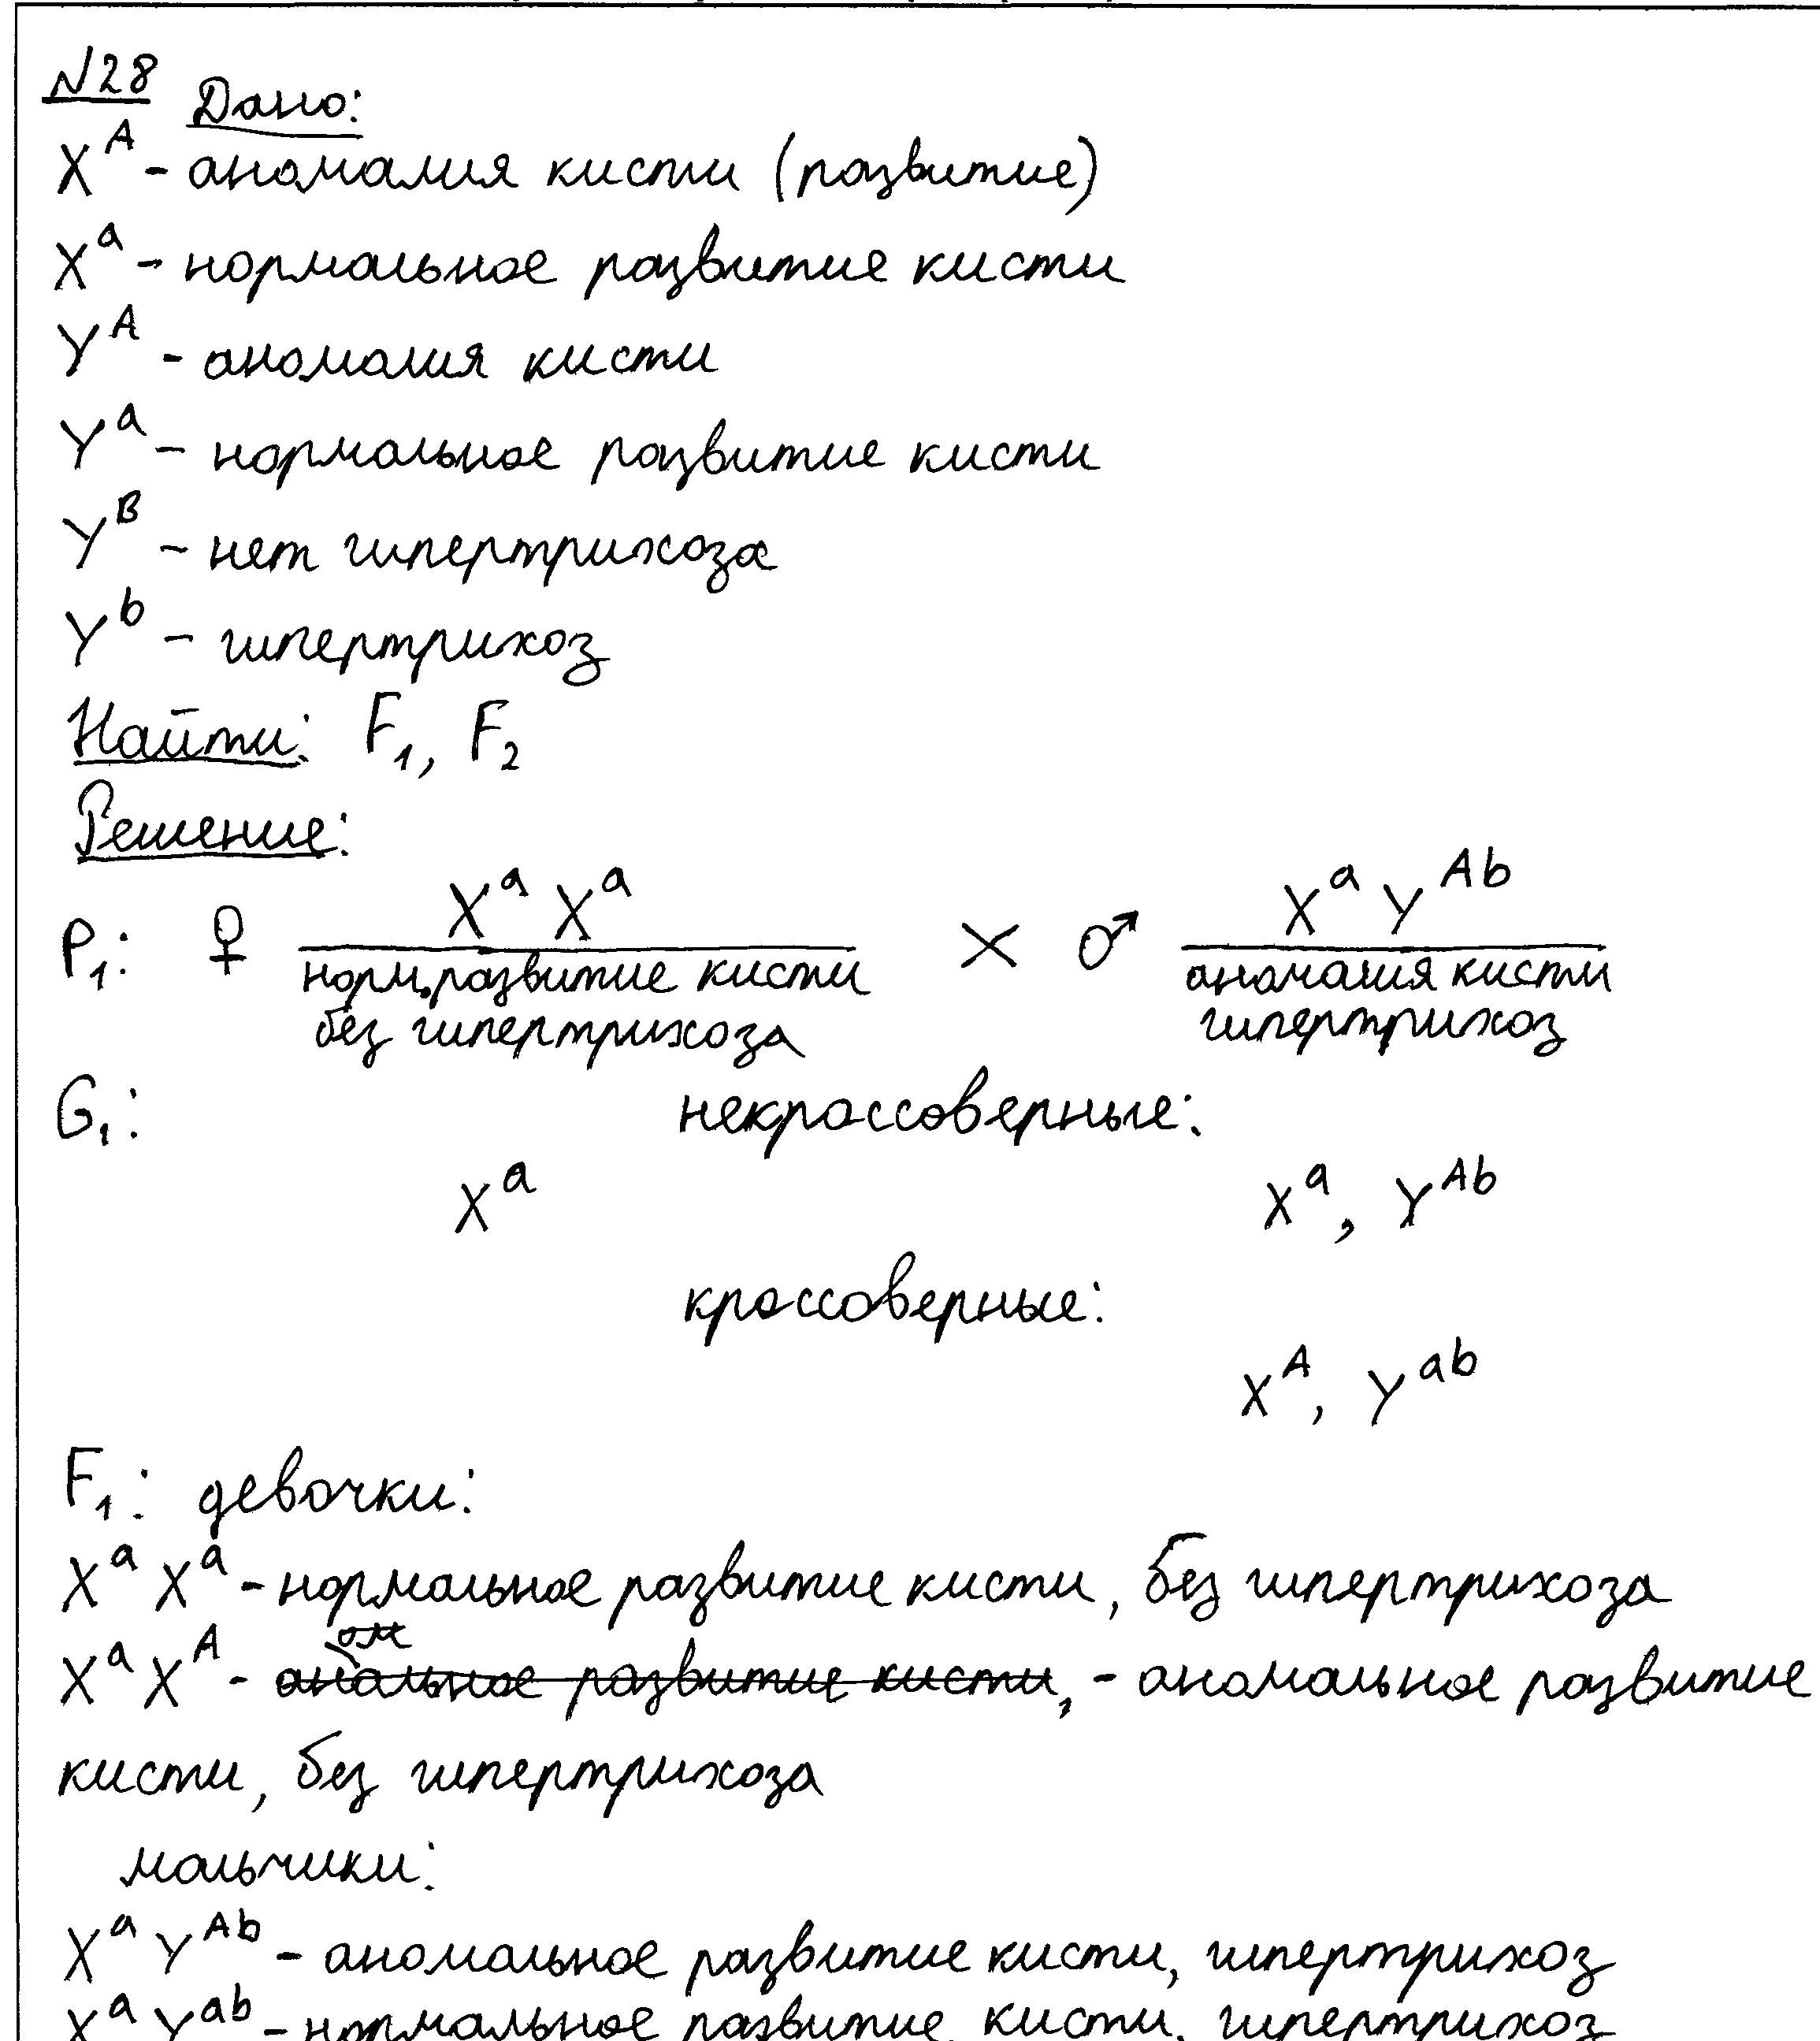 №28 Дано:
X^A - аномалия кисти (развитие)
X^a - нормальное развитие кисти
Y^A - аномалия кисти
Y^a - нормальное развитие кисти
Y^B - нет гипертрихоза
Y^b - гипертрихоз
Найти: F₁, F₂
Решение:
P₁: ♀ X^a X^a × ♂ X^a Y^Ab
норм. развитие кисти аномалия кисти
без гипертрихоза гипертрихоз
G₁: некроссоверные:
X^a X^a, Y^Ab
кроссоверные:
X^A, Y^ab
F₁: девочки:
X^a X^a - нормальное развитие кисти, без гипертрихоза
X^a X^A - аномальное развитие кисти, - аномальное развитие
кисти, без гипертрихоза
мальчики:
X^a Y^Ab - аномальное развитие кисти, гипертрихоз
X^a Y^ab - нормальное развитие кисти, гипертрихоз